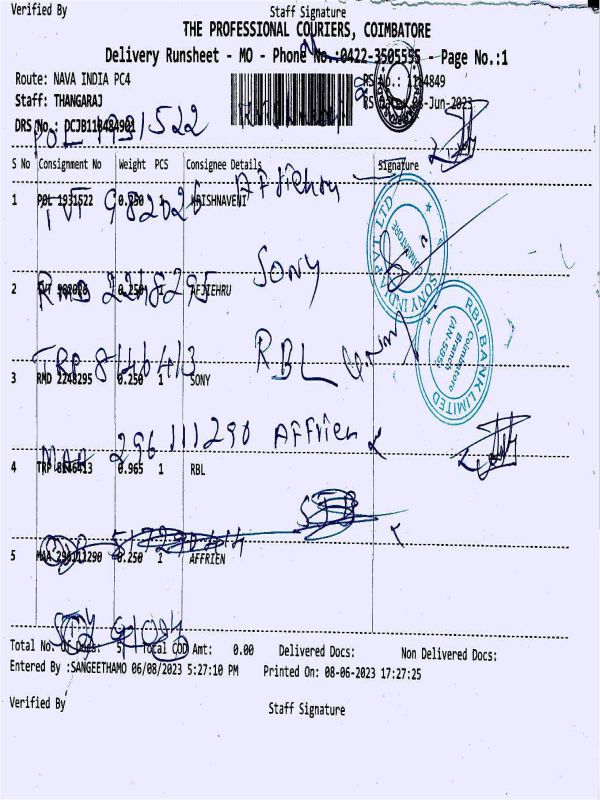 Verified By Staff Signature
THE PROFESSIONAL COURIERS, COIMBATORE
Delivery Runsheet - MO - Phone No.:0422-3505555 - Page No.:1
Route: NAVA INDIA PC4
Staff: THANGARAJ
DRS No.: DCJB118484901
POL 1931522
S No Consignment No Weight PCS Consignee Details Signature
1 POL 1931522 0.250 1 KRISHNAVENI
TVT 982026 Afjiehru
SONY INDIA PVT LTD
COIMBATORE
2 TVT 982026 0.250 1 AFJIEHRU
RMD 2248295 SONY
RBL BANK LIMITED
Coimbatore
Branch
3 RMD 2248295 0.250 1 SONY
TRP 8146413 RBL
4 TRP 8146413 0.965 1 RBL
MAA 296111290 Affrien
5 MAA 296111290 0.250 1 AFFRIEN
Total No. Of Docs: 5 Total COD Amt: 0.00 Delivered Docs: Non Delivered Docs:
Entered By :SANGEETHAMO 06/08/2023 5:27:10 PM Printed On: 08-06-2023 17:27:25
Verified By Staff Signature